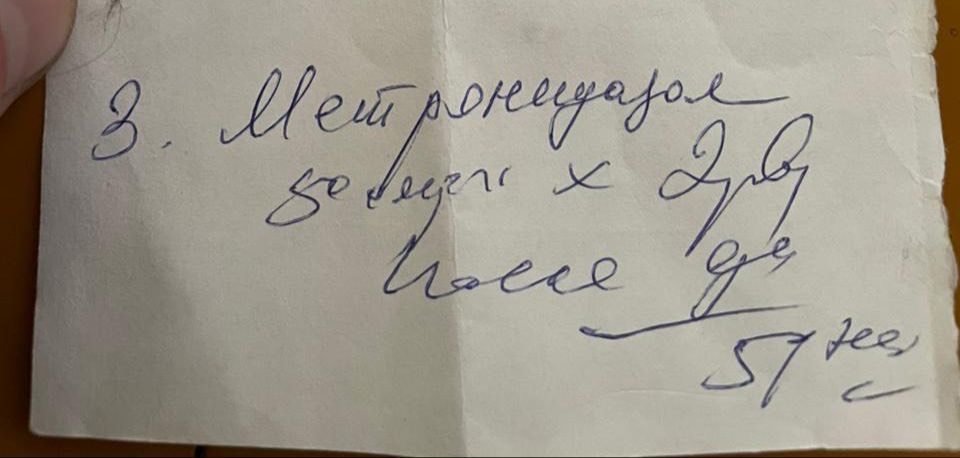 3. Метронидазол
500 мг x 2 р/д
после еды